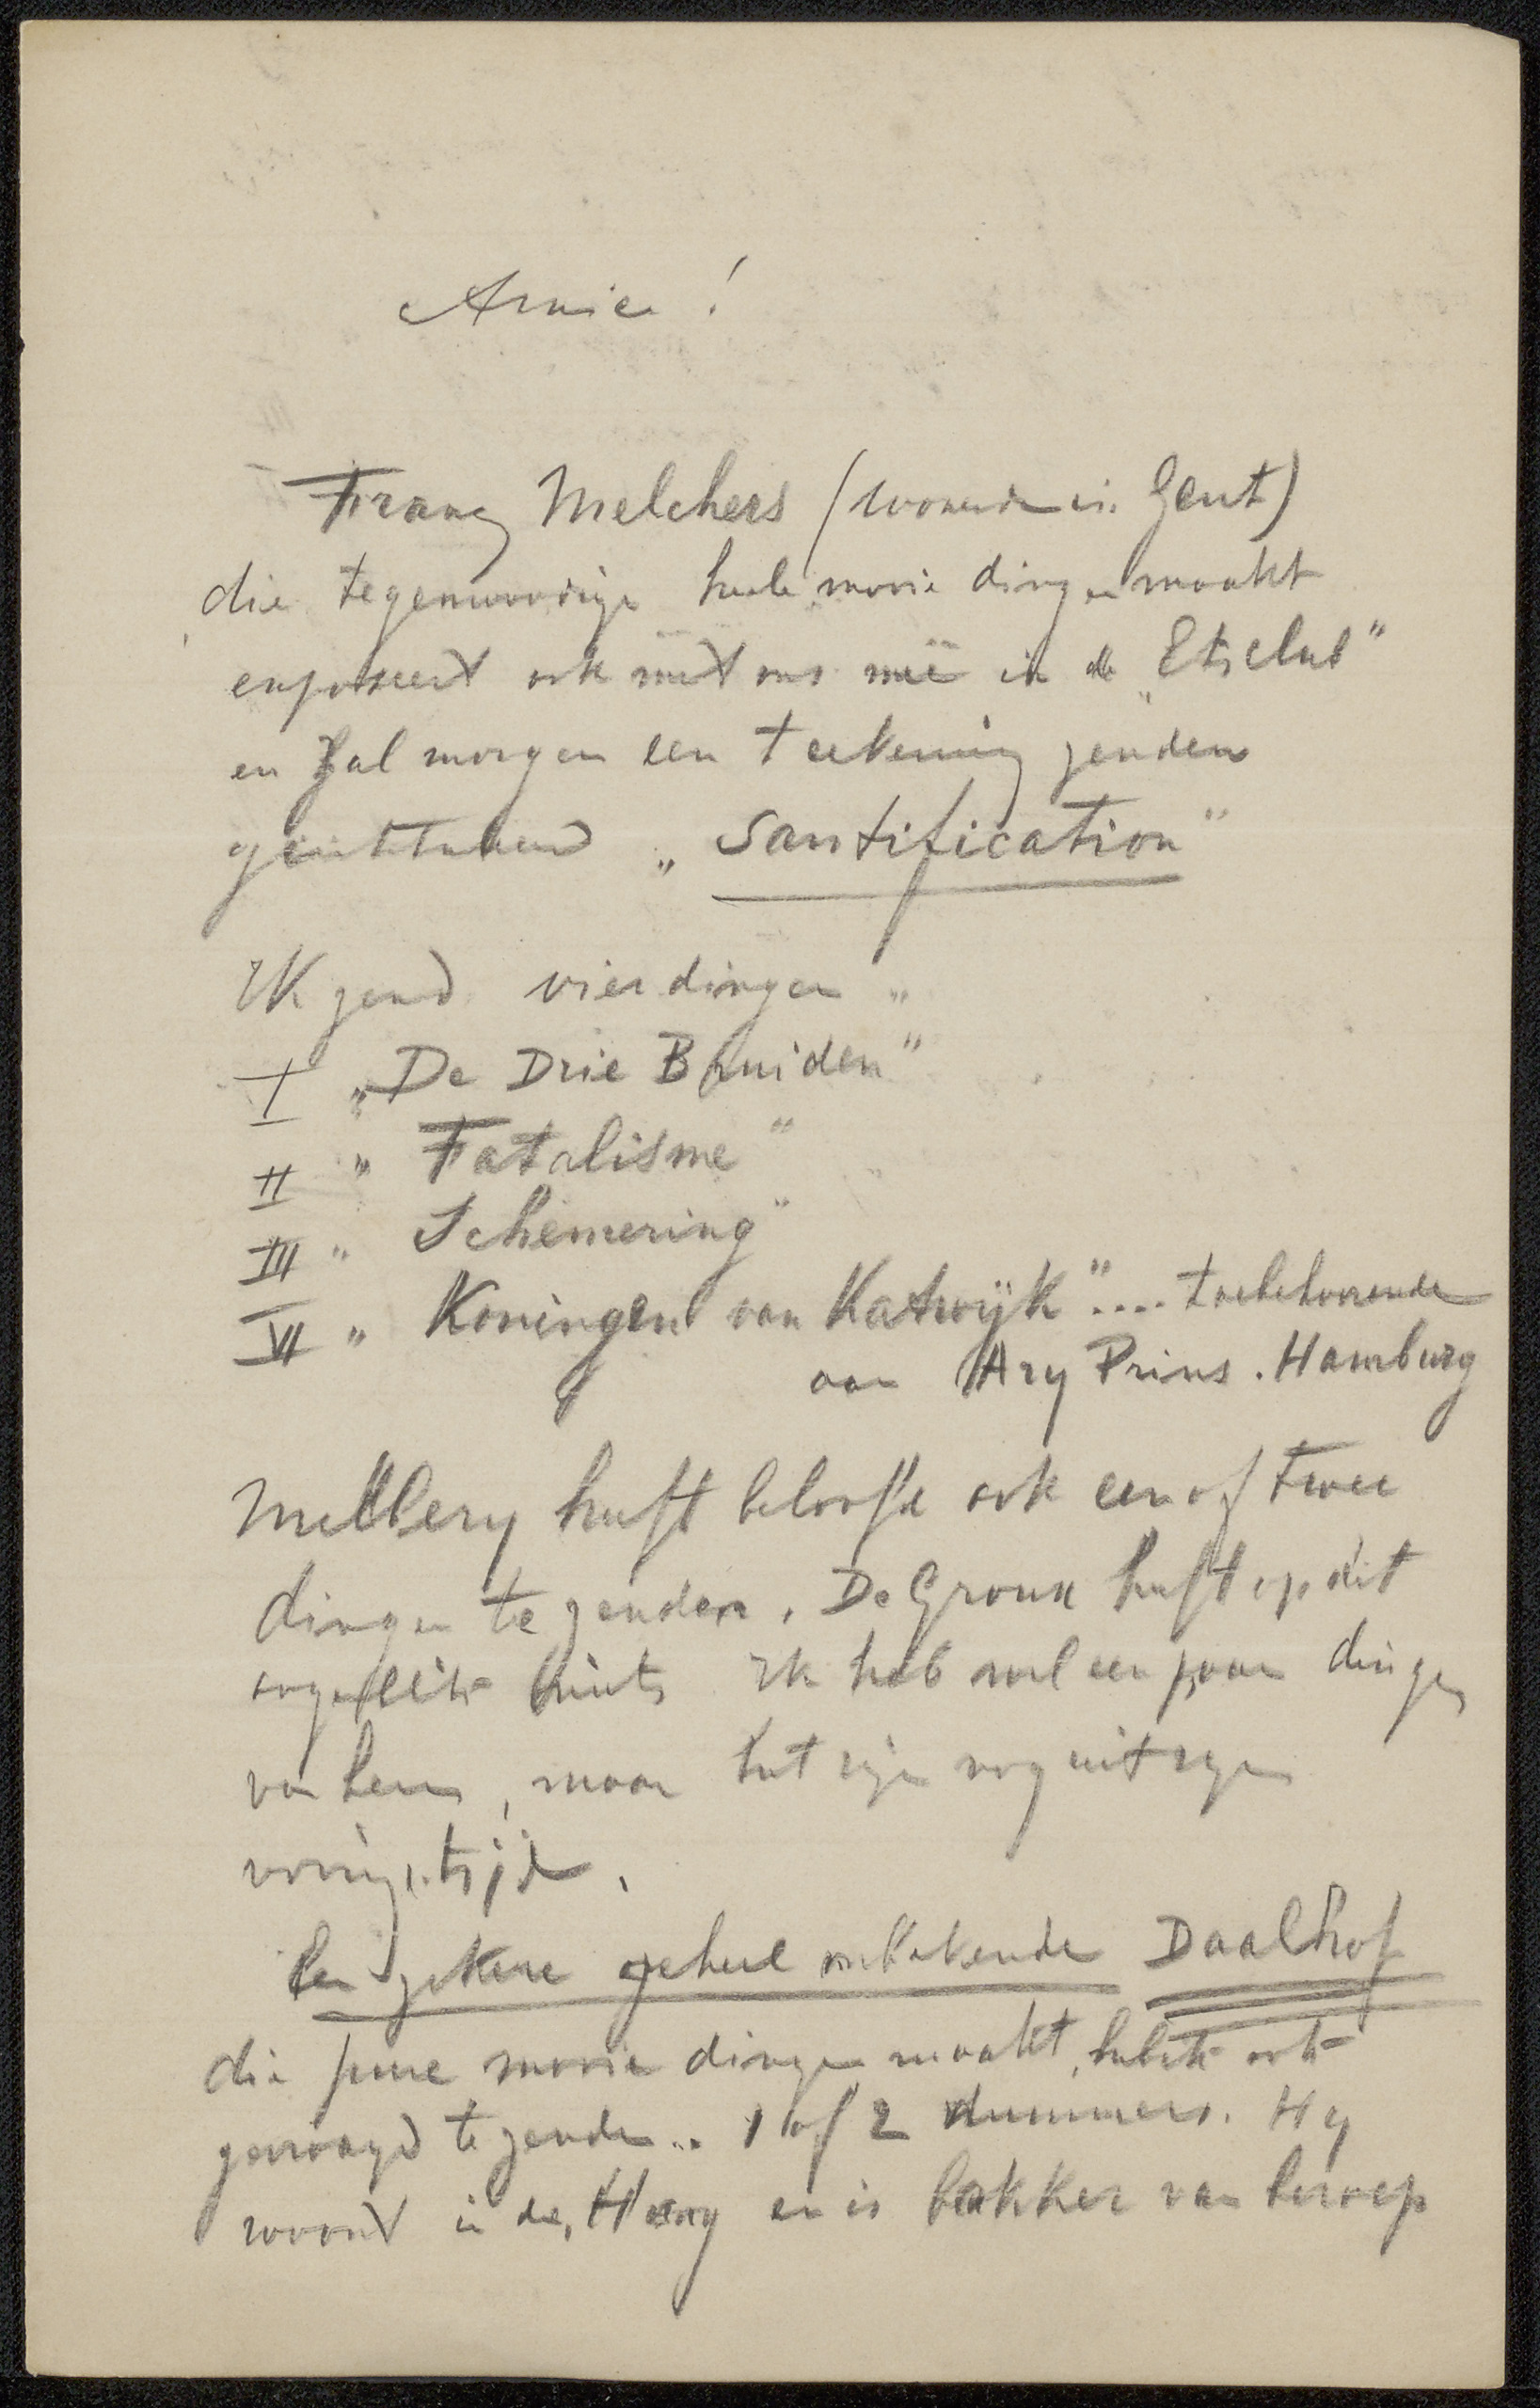 Amice!
Franz Melchers (wonende in Gent)
die tegenwoordige heele mooie dingen maakt
exposeert ook met ons meê in de „Etsclub"
en zal morgen een teekening zenden
geintituleerd „Santification"
Ik zend vier dingen „
I „De Drie Bruiden"
II „ Fatalisme"
III „ Schemering"
VI „ Koningen van Katwijk".... toebehoorende
aan Ary Prins. Hamburg
Mellery heeft beloofd ook een of twee
dingen te zenden. De Groux heeft op dit
oogenblik niets Ik heb wel een paar dingen
van hem, maar het zijn nog uit zijn
vorige tijd.
Een zekere geheel onbekende Daalhof
die zeer mooie dingen maakt, heb ik ook
gevraagd te zenden.. 1 of 2 nummers. Hy
woont in de Haag en is bakker van beroep